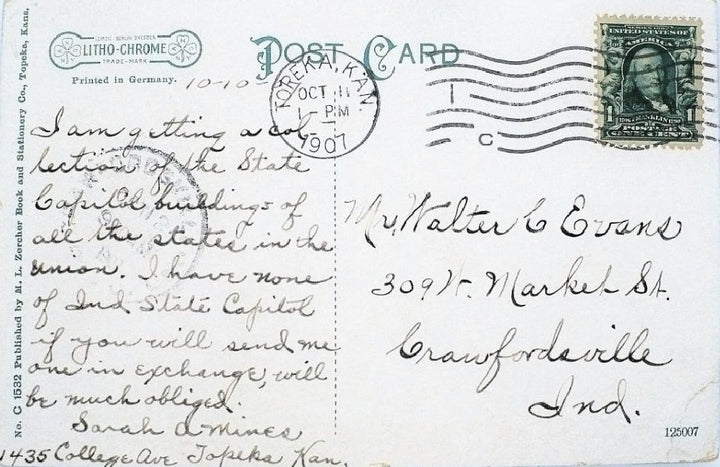 LEIPZIG BERLIN DRESDEN
LITHO-CHROME
TRADE-MARK
Printed in Germany.
POST CARD
10-10-
TOPEKA, KAN.
OCT 11
PM
1907
1
C
UNITED STATES OF
AMERICA
1 1
POSTAGE
No. C 1532 Published by M. L. Zercher Book and Stationery Co., Topeka, Kans.
I am getting a col-
lection of the State
Capitol buildings of
all the states in the
union. I have none
of Ind State Capitol
if you will send me
one in exchange, will
be much obliged.
Sarah A Mines
1435 College Ave Topeka Kan.
Mr. Walter C Evans
309 W. Market St.
Crawfordsville
Ind.
125007